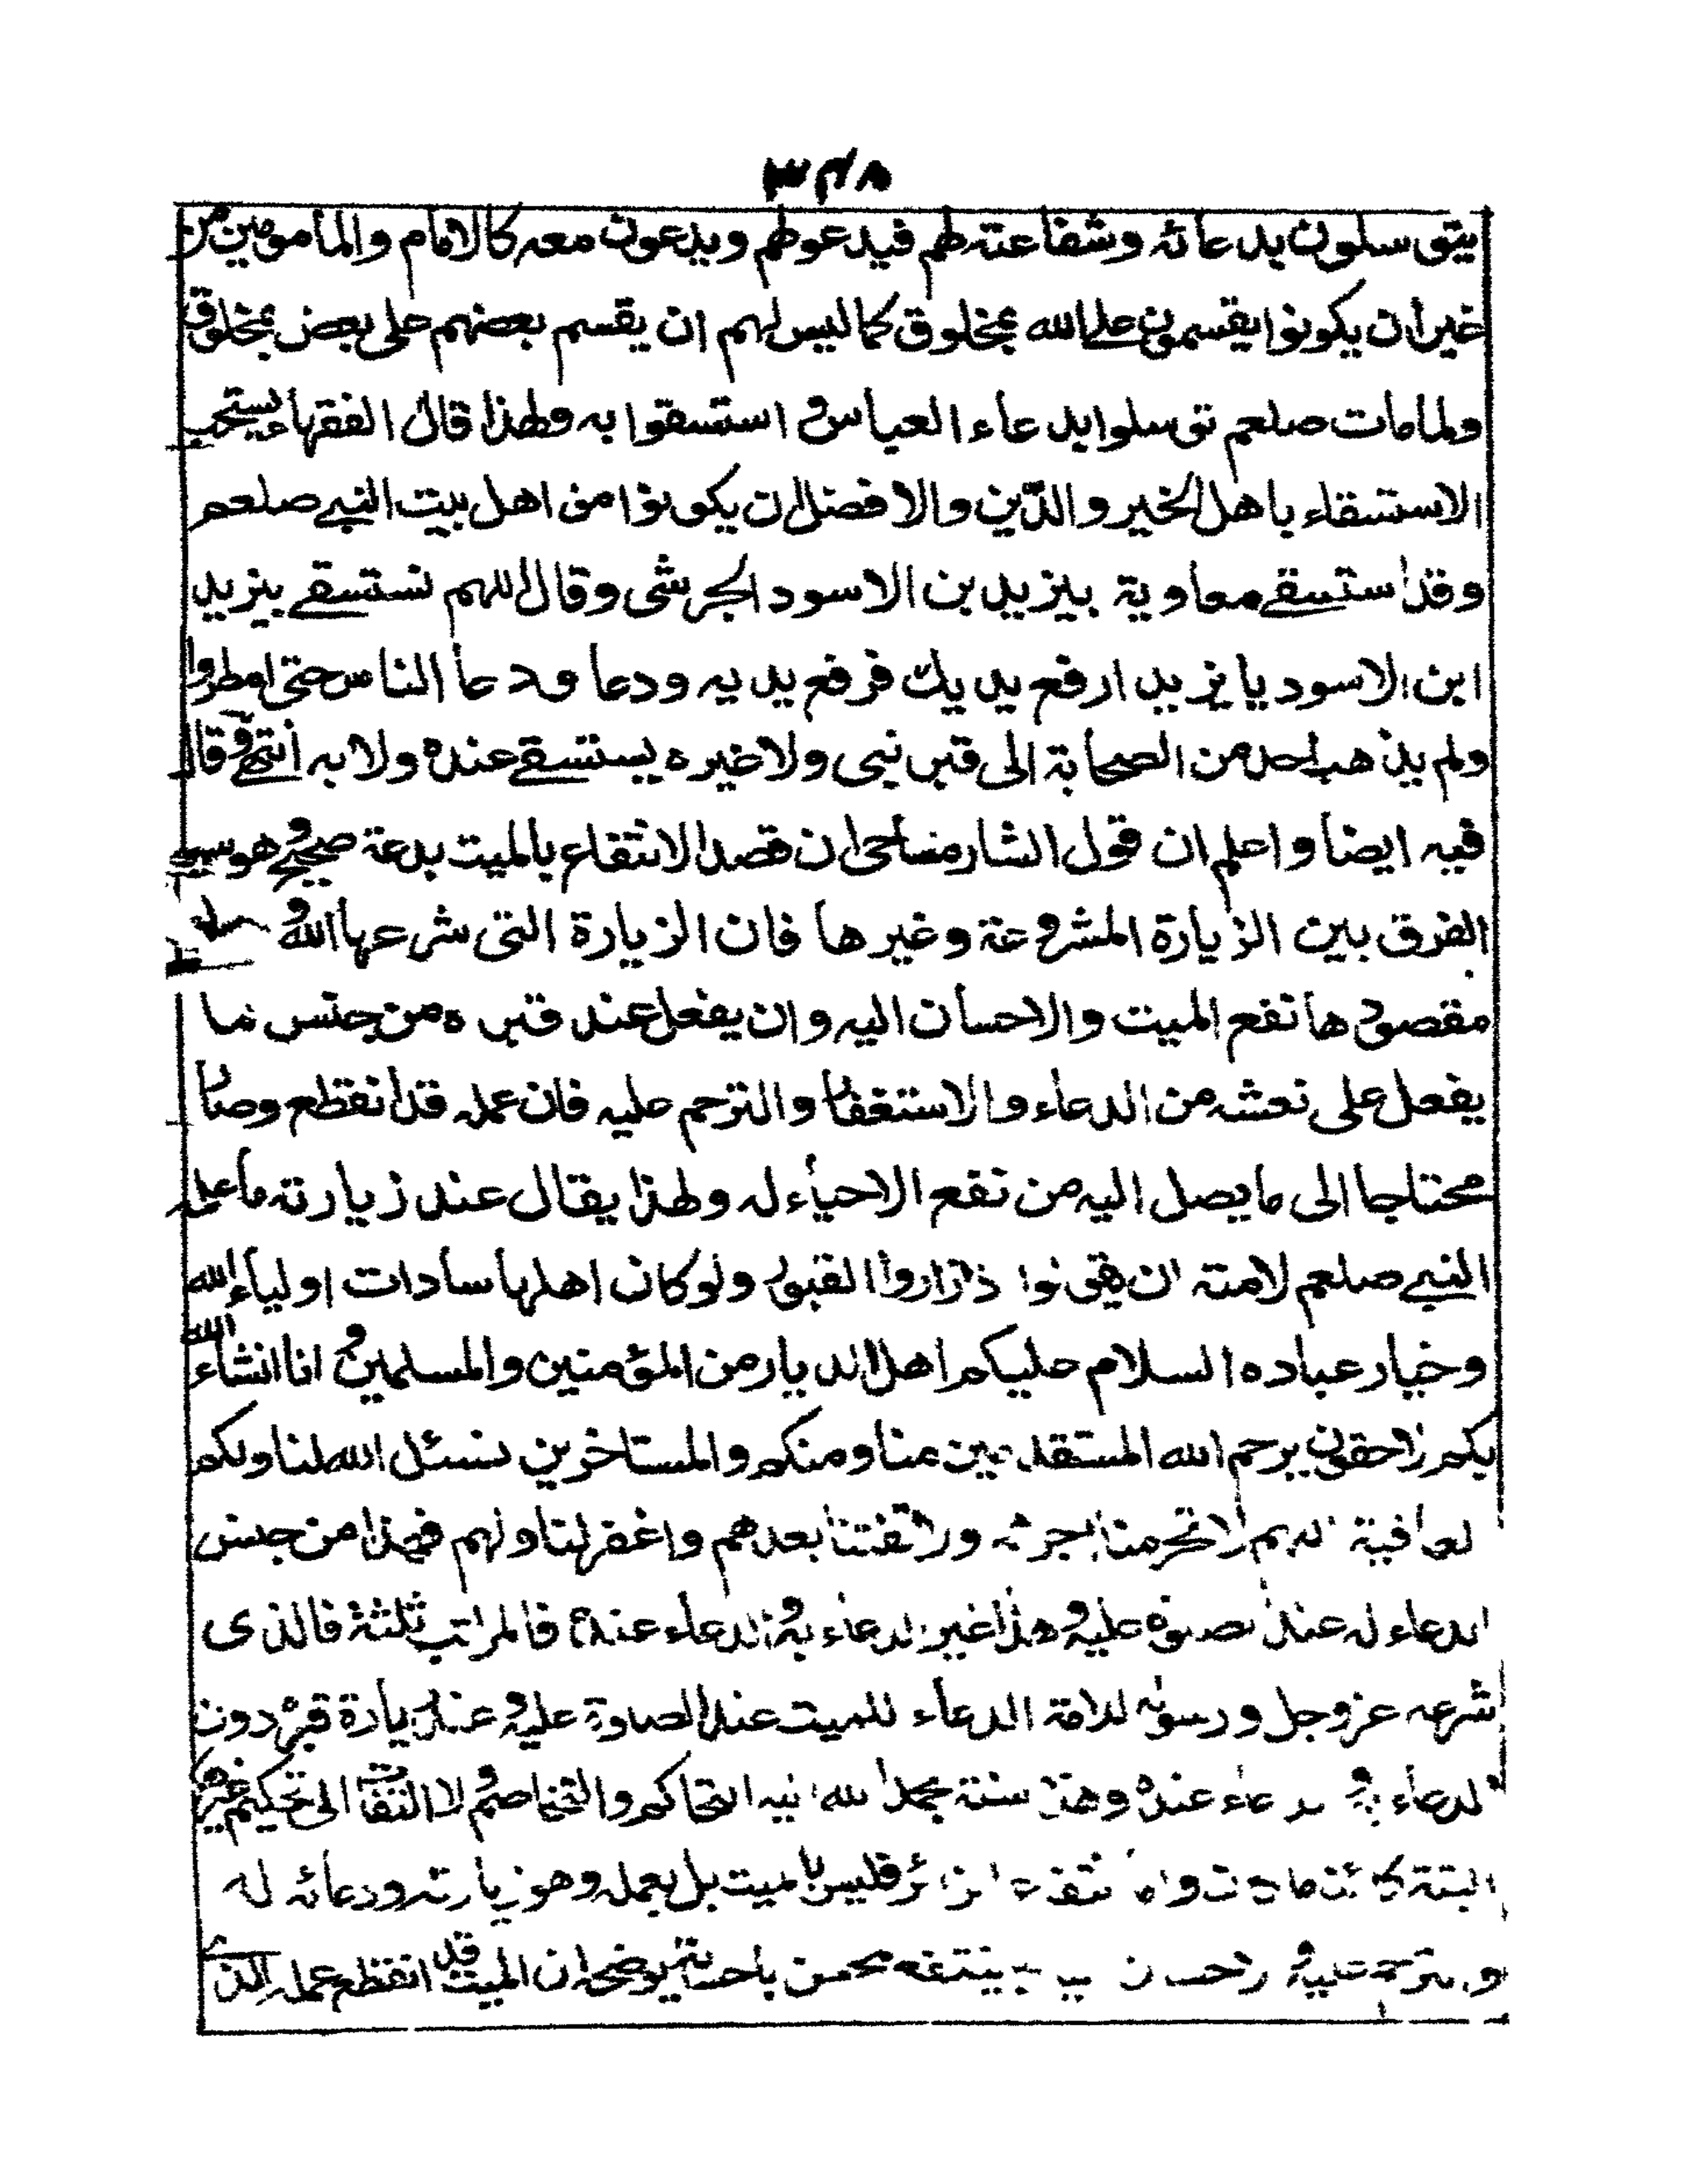 ٣٤٨
يتوسلون بدعائه وشفاعته لهم فيدعو لهم ويدعون معه كالامام والمأمومين من
غير ان يكونوا يقسمون على الله بمخلوق كما ليس لهم ان يقسم بعضهم على بعض بمخلوق
ولما مات صلعم توسلوا بدعاء العباس واستسقوا به ولهذا قال الفقهاء يستحب
الاستسقاء باهل الخير والدّين والافضل ان يكونوا من اهل بيت النبي صلعم
وقد استسقى معاوية بيزيد بن الاسود الجرشى وقال اللهم نستسقى بيزيد
ابن الاسود يا يزيد ارفع يديك فرفع يديه ودعا ودعا الناس حتى امطروا
ولم يذهب احد من الصحابة الى قبر نبى ولا غيره يستسقى عنده ولا به انتهى وقال
فيه ايضا واعلم ان قول الشارمساحى ان قصد الانتفاع بالميت بدعة صحيح وهو سبيى
الفرق بين الزيارة المشروعة وغيرها فان الزيارة التى شرعها الله و
مقصودها نفع الميت والاحسان اليه وان يفعل عند قبره من جنس ما
يفعل على نعشه من الدعاء والاستغفار والترحم عليه فان عمله قد انقطع وصار
محتاجا الى ما يصل اليه من نفع الاحياء له ولهذا يقال عند زيارته ما علم
النبي صلعم لامته ان يقولوا اذا زاروا القبور ولو كان اهلها سادات اولياء الله
وخيار عباده السلام عليكم اهل الديار من المؤمنين والمسلمين وانا انشاء الله
بكم لاحقون يرحم الله المستقدمين منا ومنكم والمستاخرين نسئل الله لنا ولكم
العافية اللهم لا تحرمنا اجرهم ولا تفتنا بعدهم واغفر لنا ولهم فهذا من جنس
الدعاء له عند الصلوة عليه وهذا غير الدعاء به والدعاء عنده فالمراتب ثلثة فالذى
شرعه عز وجل ورسوله للامة الدعاء للميت عند الصلوة عليه وعند زيارة قبره دون
الدعاء به والدعاء عنده وهذه سنة بحمد الله اليه التحاكم والتخاصم ولا التفات الى تحكيم غيرها
البتة كائنا ما كان واما انتفاع الزائر فليس بالميت بل بعمله وهو زيارته ودعائه له
والترحم عليه والاحسان اليه ينتفع المحسن باحسانه يوضحه ان الميت قد انقطع عمله الذى